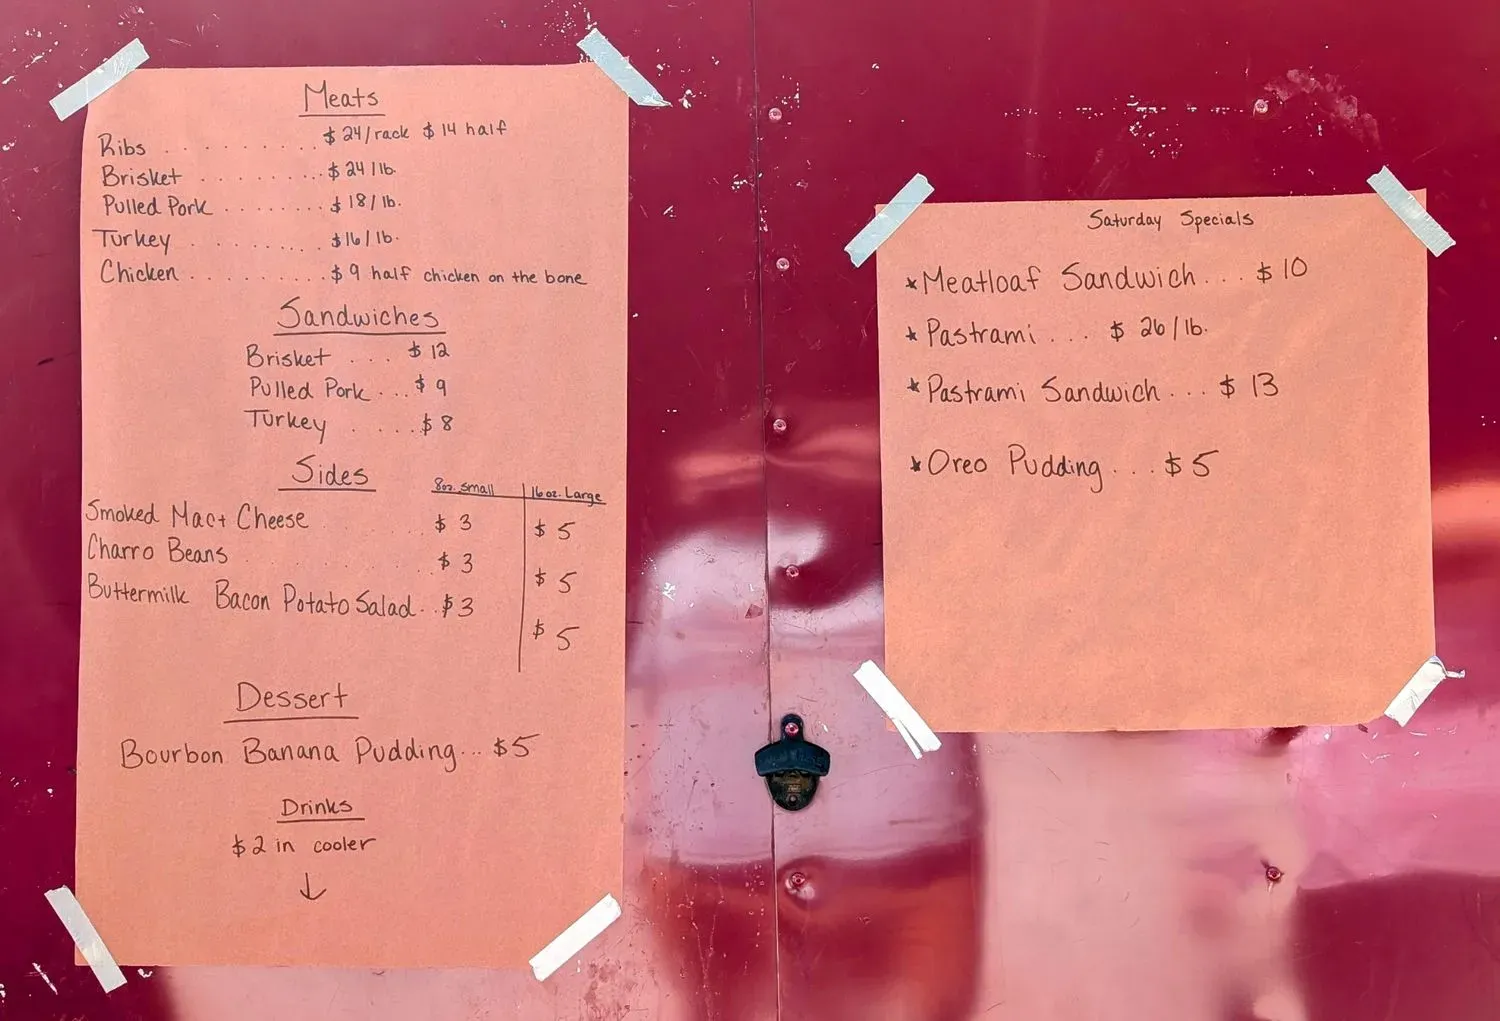 Meats
Ribs . . . . . . . . . . $24/rack $14 half
Brisket . . . . . . . . . $24/lb.
Pulled Pork . . . . . . . . $18/lb.
Turkey . . . . . . . . . $16/lb.
Chicken . . . . . . . . . $9 half chicken on the bone
Sandwiches
Brisket . . . . $12
Pulled Pork . . . $9
Turkey . . . . . $8
Sides 8oz. small 16oz. Large
Smoked Mac + Cheese . . . . . $3 $5
Charro Beans . . . . . . . . . $3 $5
Buttermilk Bacon Potato Salad . . $3 $5
Dessert
Bourbon Banana Pudding . . . $5
Drinks
$2 in cooler
↓
Saturday Specials
★ Meatloaf Sandwich . . . $10
★ Pastrami . . . $26/lb.
★ Pastrami Sandwich . . . $13
★ Oreo Pudding . . . $5